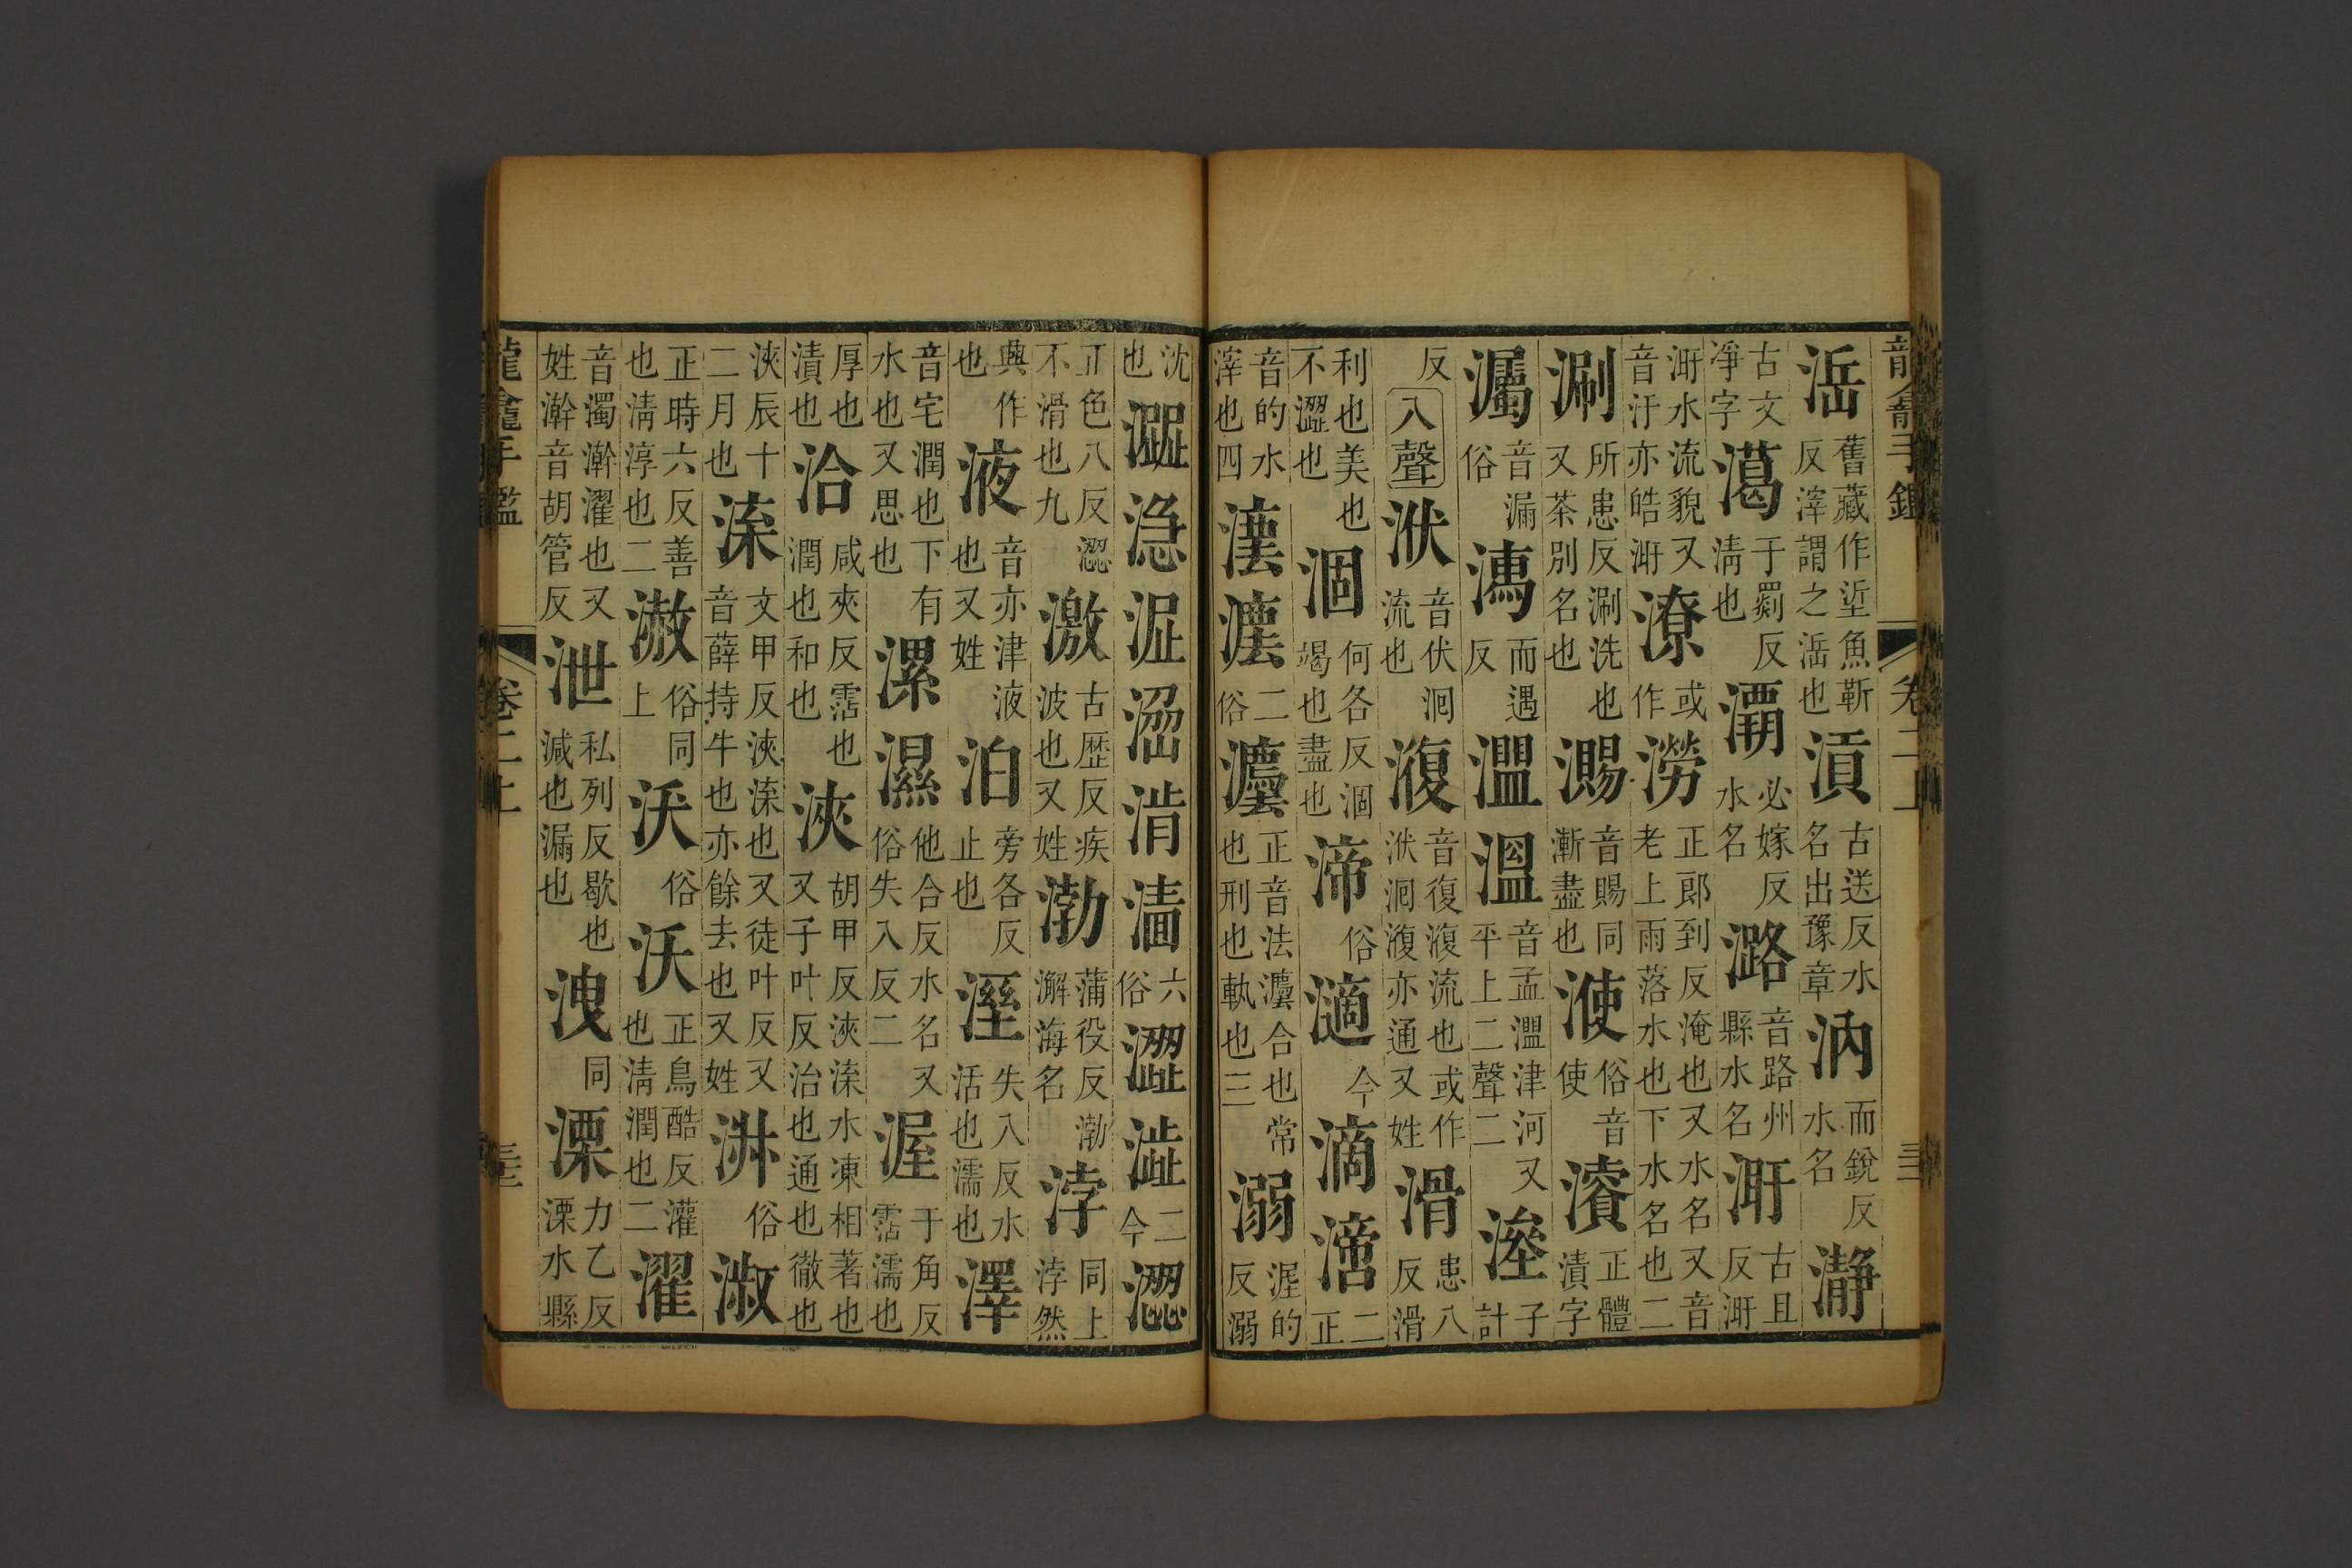 龍龕手鑑 卷二上 三二
㳶舊藏作垽魚靳反滓謂之㳶也湏古送反水名出豫章汭而銳反水名瀞
古文凈字濊于劌反清也灞必嫁反水名潞音路州縣水名㵎古且反㵎
㵎水流貌又音汙亦皓㵎潦或作澇正郎到反淹也又水名又音老上雨落水也下水名也二
涮所患反涮洗也又茶別名也㵐音賜同漸盡也浭俗音使濱正體漬字
灟音漏俗㵼而遇反溫溫音孟溫津河又平上二聲二㴉子計
反入聲洑音伏洄流也澓音復澓流也或作洑洄澓亦通又姓滑患八反滑
利也美也不澀也涸何各反涸竭也盡也渧俗適今滴㴿二正
音的水滓也四㵄㶍二俗灋正音法灋合也常也刑也執也三溺泥的反溺
沈也澁㴔浕澀渻湎六俗澀澁二今濍
正色八反澀不滑也九激古歷反疾波也又姓渤蒲役反渤澥海名浡同上浡然
興作也液音亦津液也又姓泊旁各反止也溼失入反水活也濡也澤
音宅潤也下有水也又思也漯濕他合反水名又俗失入反二渥于角反霑濡也
厚也漬也洽咸夾反霑也潤也和也浹胡甲反浹渫水凍相著也又子叶反治也通也徹也
浹辰十二月也渫文甲反浹渫也又徒叶反又音薛持牛也亦餘去也又姓淋俗淑
正時六反善也清淳也二潎俗同上沃俗沃正烏酷反灌也清潤也二濯
音濁澣濯也又姓澣音胡管反泄私列反歇也減也漏也洩同溧力乙反溧水縣
龍龕手鑑 卷二上 三三